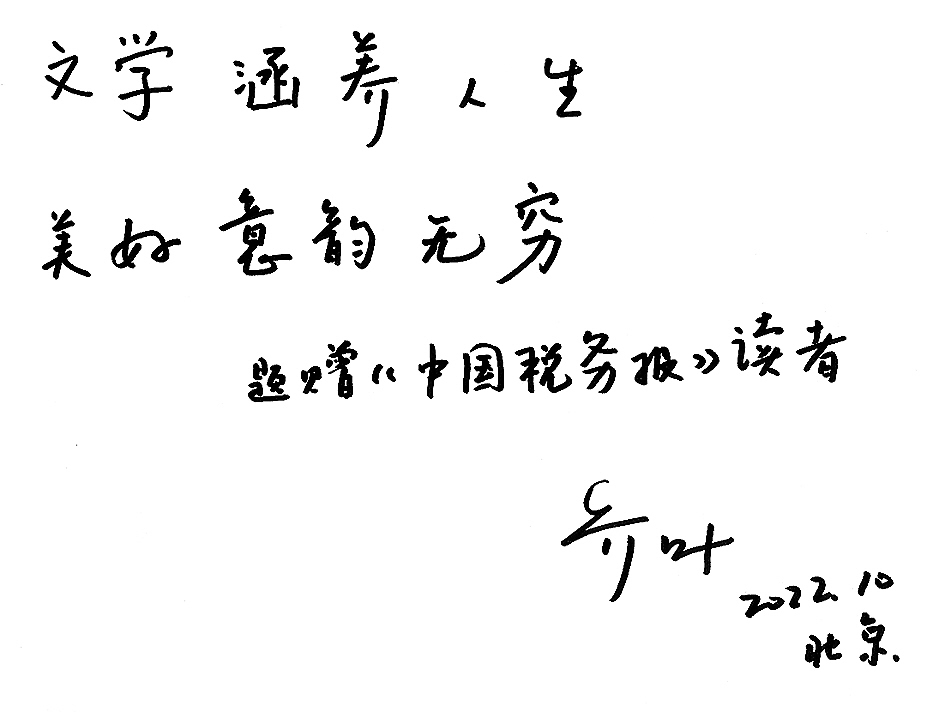 文学涵养人生
美好意韵无穷
题赠《中国税务报》读者
乔叶
2022.10
北京.